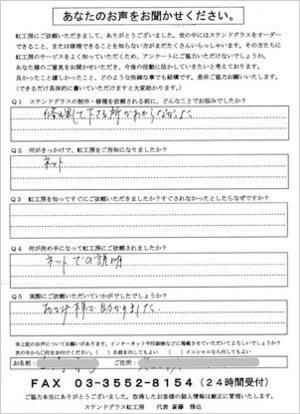 あなたのお声をお聞かせください。
虹工房にご依頼いただきまして、ありがとうございました。世の中にはステンドグラスをオーダー
できること、または修理できることを知らない方がまだたくさんいらっしゃいます。その方たちに
虹工房のサービスをよく知っていただくため、アンケートにご協力いただけないでしょうか。
あなた様のご意見をお聞かせいただき、今後の活動に活かしていきたいと考えております。
良かったこと嬉しかったこと、どのような些細な事でも結構です。是非ご協力お願いいたします。
(できるだけ具体的に書いていただけますと大変助かります)
Q1 ステンドグラスの制作・修理を依頼される前に、どんなことでお悩みでしたか?
修理して下さる所がわからなかった
Q2 何がきっかけで、虹工房をご存知になりましたか?
ネット
Q3 虹工房を知ってすぐにご依頼いただきましたか?すぐされなかったとしたらなぜですか?
Q4 何が決め手になって虹工房にご依頼されましたか?
ネットでの説明
Q5 実際にご依頼いただいていかがでしたでしょうか?
おかげ様で助かりました。
※上記のお声についてお願いがあります。インターネットや印刷物などに掲載させていただいてよろしいでしょうか?
お名前:
ご住所:
FAX 03-3552-8154(24時間受付)
ご協力本当にありがとうございました。取得したお客様の個人情報は厳正に管理いたします。
ステンドグラス虹工房 代表 斎藤